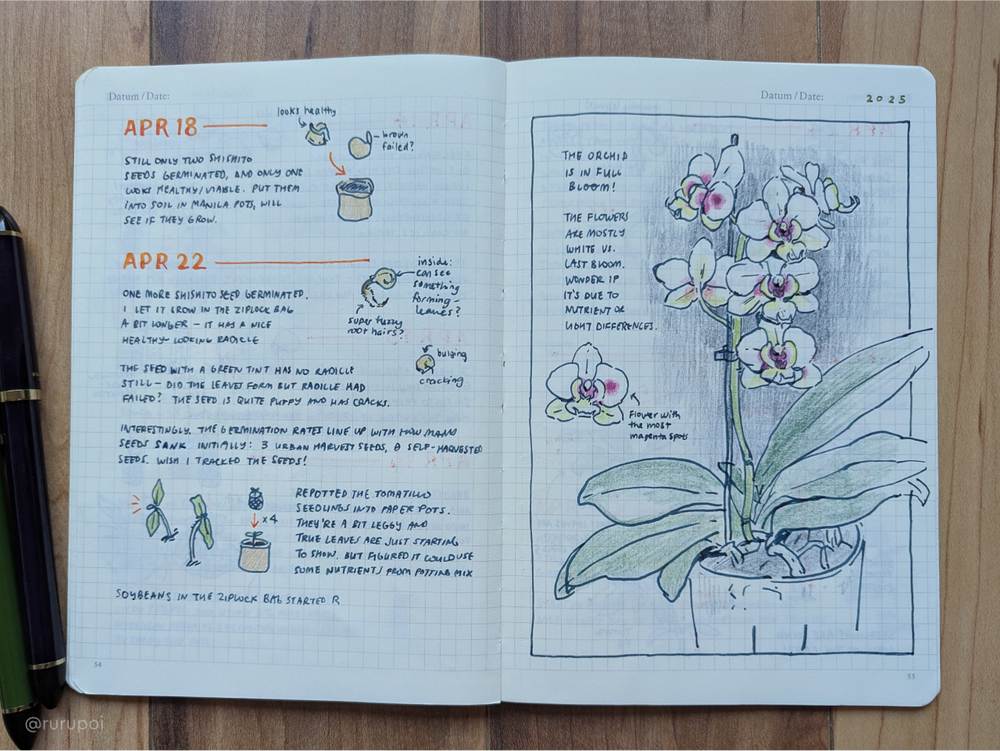 Datum / Date:
APR 18
looks healthy
brown
failed?
STILL ONLY TWO SHISHITO
SEEDS GERMINATED, AND ONLY ONE
LOOKS HEALTHY/VIABLE. PUT THEM
INTO SOIL IN MANILA POTS, WILL
SEE IF THEY GROW.
APR 22
inside:
can see
something
forming -
leaves?
super fuzzy
root hairs?
ONE MORE SHISHITO SEED GERMINATED.
I LET IT GROW IN THE ZIPLOCK BAG
A BIT LONGER - IT HAS A NICE
HEALTHY-LOOKING RADICLE
bulging
cracking
THE SEED WITH A GREEN TINT HAS NO RADICLE
STILL - DID THE LEAVES FORM BUT RADICLE HAD
FAILED? THE SEED IS QUITE PUFFY AND HAS CRACKS.
INTERESTINGLY, THE GERMINATION RATES LINE UP WITH HOW MANY
SEEDS SANK INITIALLY: 3 URBAN HARVEST SEEDS, 2 SELF-HARVESTED
SEEDS. WISH I TRACKED THE SEEDS!
x4
REPOTTED THE TOMATILLO
SEEDLINGS INTO PAPER POTS.
THEY'RE A BIT LEGGY AND
TRUE LEAVES ARE JUST STARTING
TO SHOW. BUT FIGURED IT COULD USE
SOME NUTRIENTS FROM POTTING MIX
SOYBEANS IN THE ZIPLOCK BAG STARTED R
54
Datum / Date:
2025
THE ORCHID
IS IN FULL
BLOOM!
THE FLOWERS
ARE MOSTLY
WHITE VS.
LAST BLOOM.
WONDER IF
IT'S DUE TO
NUTRIENT OR
LIGHT DIFFERENCES.
Flower with
the most
magenta spots
55
@rurupoi